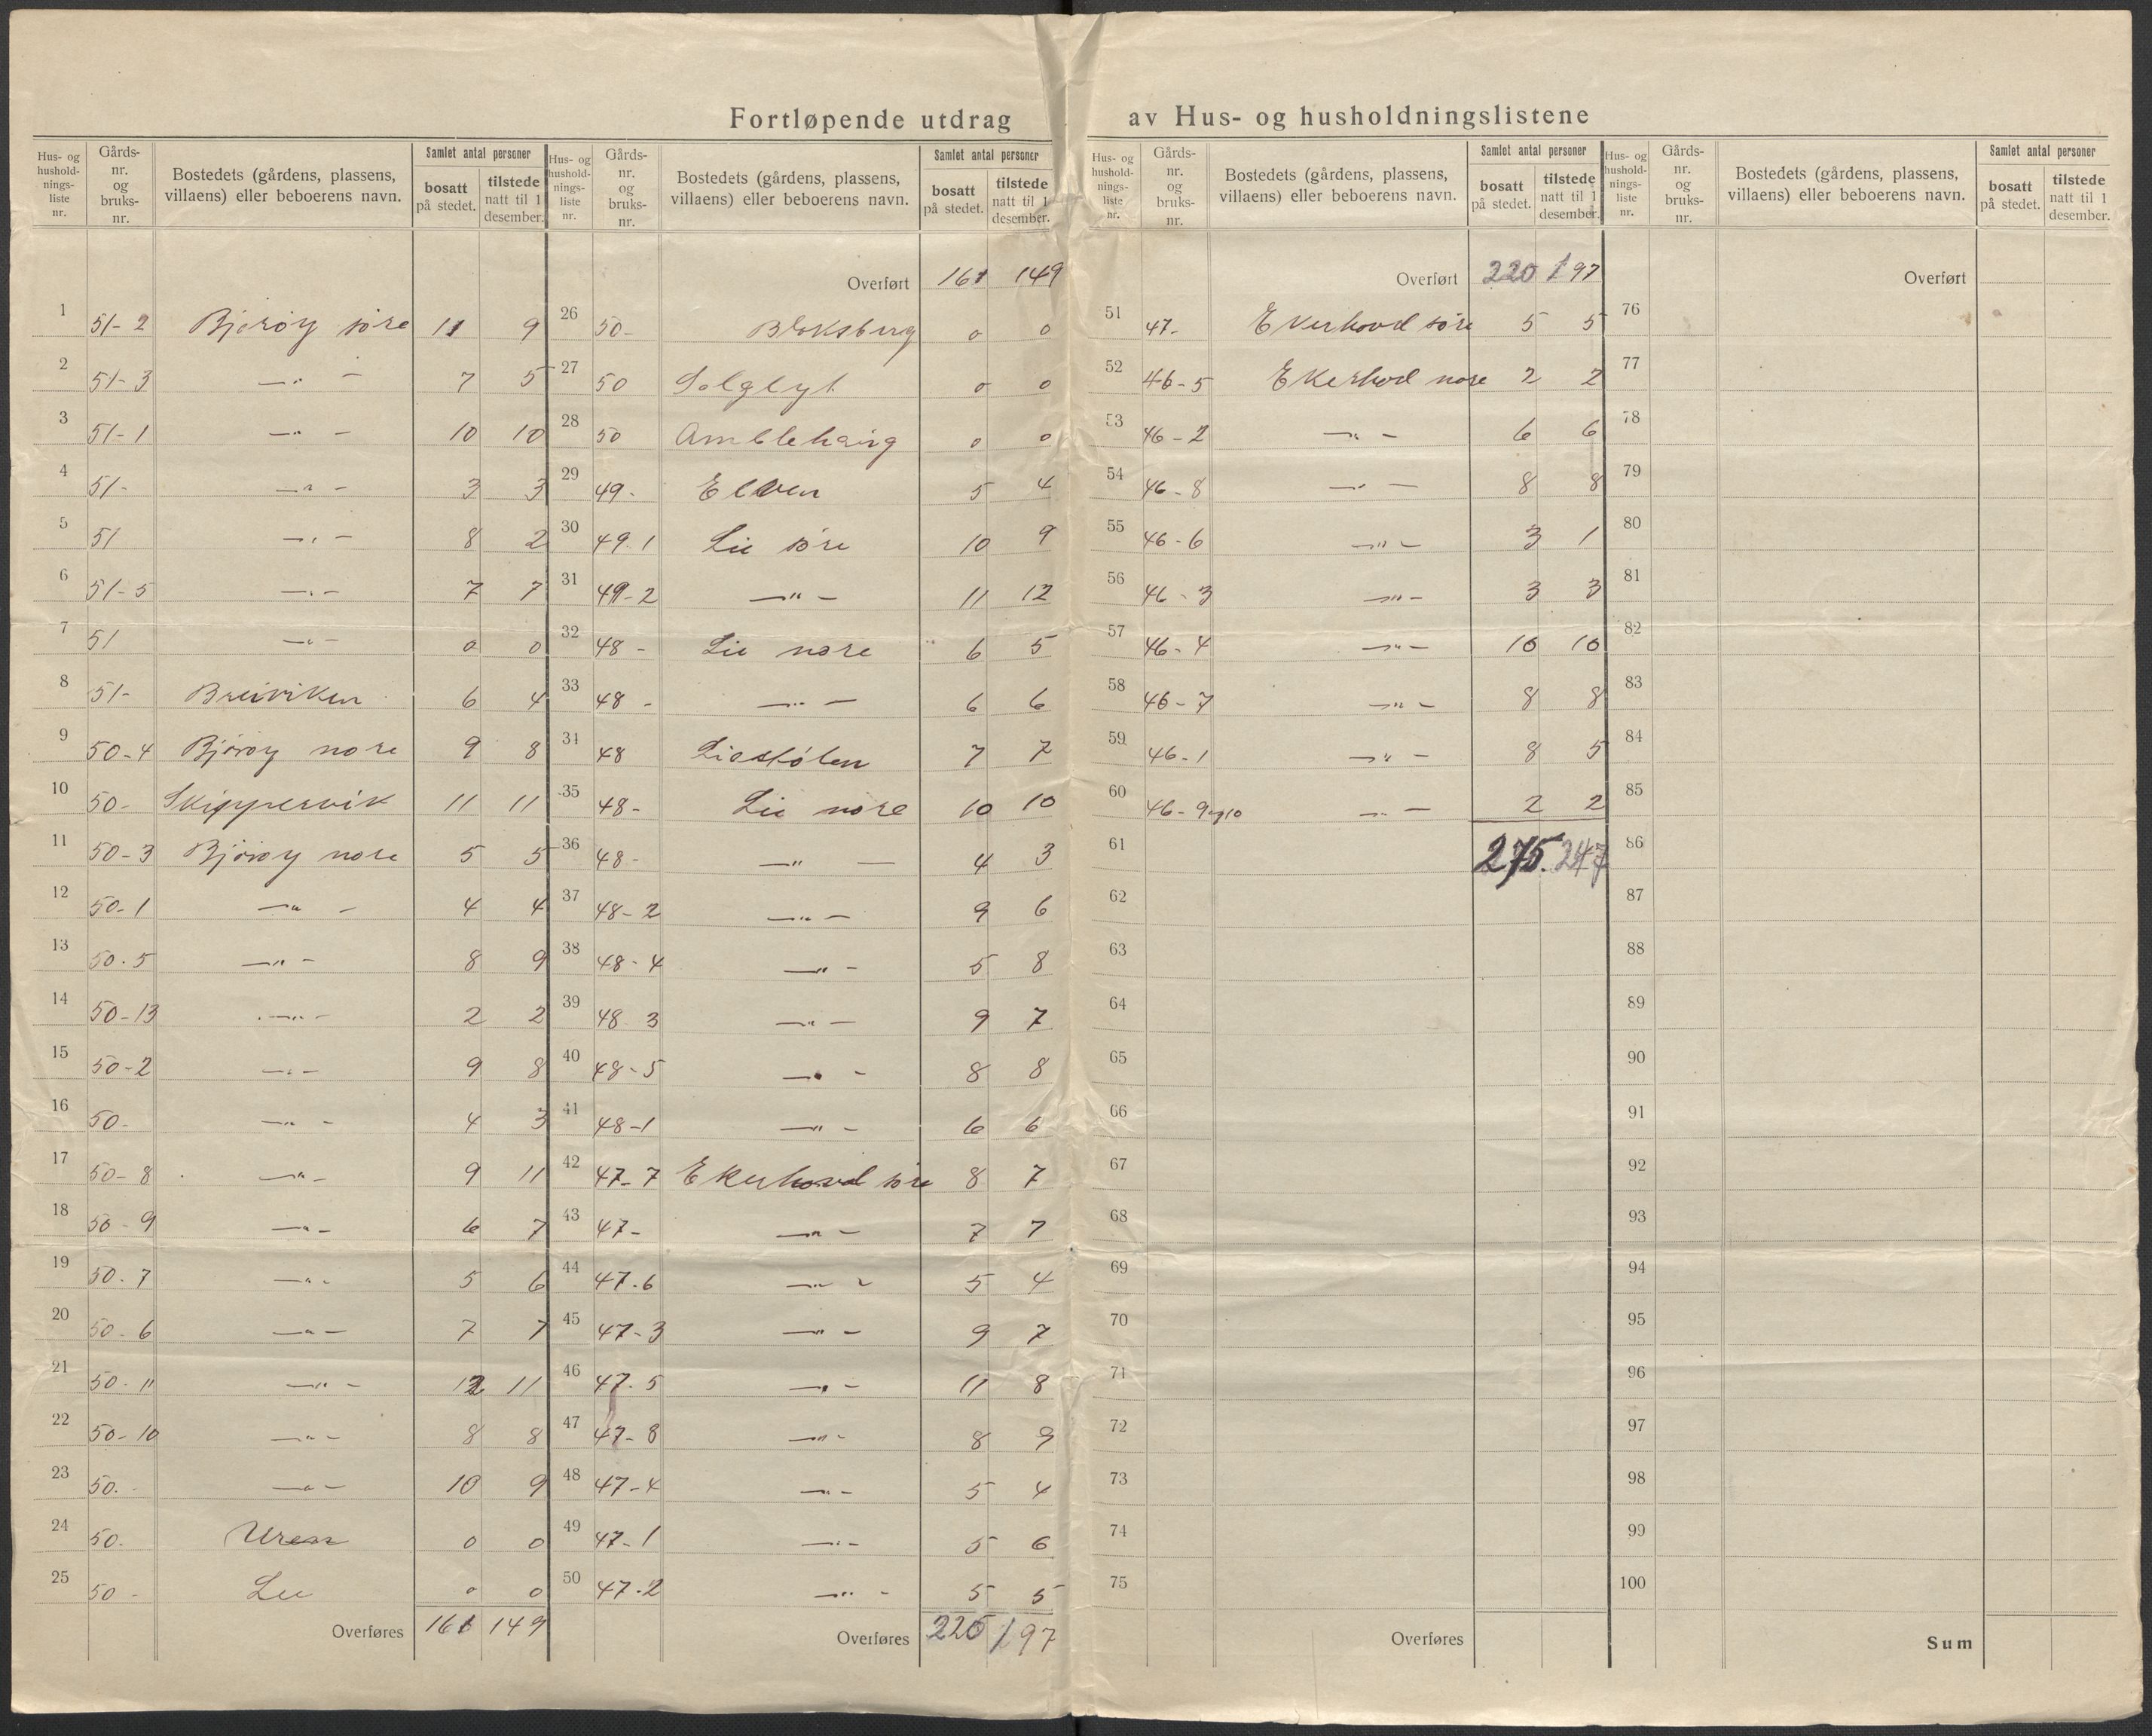 Fortløpende utdrag av Hus- og husholdningslistene
Hus- og hushold-nings-liste nr. | Gårds-nr. og bruks-nr. | Bostedets (gårdens, plassens, villaens) eller beboerens navn. | Samlet antal personer | bosatt på stedet. | tilstede natt til 1 desember.
1 51-2 Bjorøy søre 11 9
2 51-3 —„— 7 5
3 51-1 —„— 10 10
4 51- —„— 3 3
5 51 —„— 8 2
6 51-5 —„— 7 7
7 51 —„— 0 0
8 51- Breiviken 6 4
9 50-4 Bjørøy nore 9 8
10 50- Skippervik 11 11
11 50-3 Bjørøy nore 5 5
12 50-1 —„— 4 4
13 50.5 —„— 8 9
14 50-13 —„— 2 2
15 50-2 —„— 9 8
16 50- —„— 4 3
17 50-8 —„— 9 11
18 50-9 —„— 6 7
19 50.7 —„— 5 6
20 50-6 —„— 7 7
21 50-11 —„— 12 11
22 50-10 —„— 8 8
23 50.- —„— 10 9
24 50. Uren 0 0
25 50- Lee 0 0
Overføres 161 149
Hus- og hushold-nings-liste nr. | Gårds-nr. og bruks-nr. | Bostedets (gårdens, plassens, villaens) eller beboerens navn. | Samlet antal personer | bosatt på stedet. | tilstede natt til 1 desember.
Overført 161 149
26 50- Bloksberg 0 0
27 50 Solglyt 0 0
28 50 0 0
29 49- Elven 5 4
30 49.1 Lie søre 10 9
31 49-2 —„— 11 12
32 48- Lie nore 6 5
33 48- —„— 6 6
34 48 Liastølen 7 7
35 48- Lie nore 10 10
36 48- —„— 4 3
37 48-2 —„— 9 6
38 48-4 —„— 5 8
39 48 3 —„— 9 7
40 48-5 —„— 8 8
41 48-1 —„— 6 6
42 47-7 Ekerhovd søre 8 7
43 47- —„— 7 7
44 47.6 —„— 5 4
45 47-3 —„— 9 7
46 47.5 —„— 11 8
47 47-8 —„— 8 9
48 47-4 —„— 5 4
49 47-1 —„— 5 6
50 47-2 —„— 5 5
Overføres 220 197
Hus- og hushold-nings-liste nr. | Gårds-nr. og bruks-nr. | Bostedets (gårdens, plassens, villaens) eller beboerens navn. | Samlet antal personer | bosatt på stedet. | tilstede natt til 1 desember.
Overført 220 197
51 47- Ekerhovd søre 5 5
52 46-5 Ekerhod nore 2 2
53 46-2 —„— 6 6
54 46-8 —„— 8 8
55 46-6 —„— 3 1
56 46-3 —„— 3 3
57 46-4 —„— 10 10
58 46-7 —„— 8 8
59 46-1 —„— 8 5
60 46-9og10 —„— 2 2
61 275. 247
62
63
64
65
66
67
68
69
70
71
72
73
74
75
Overføres
Hus- og hushold-nings-liste nr. | Gårds-nr. og bruks-nr. | Bostedets (gårdens, plassens, villaens) eller beboerens navn. | Samlet antal personer | bosatt på stedet. | tilstede natt til 1 desember.
Overført
76
77
78
79
80
81
82
83
84
85
86
87
88
89
90
91
92
93
94
95
96
97
98
99
100
Sum